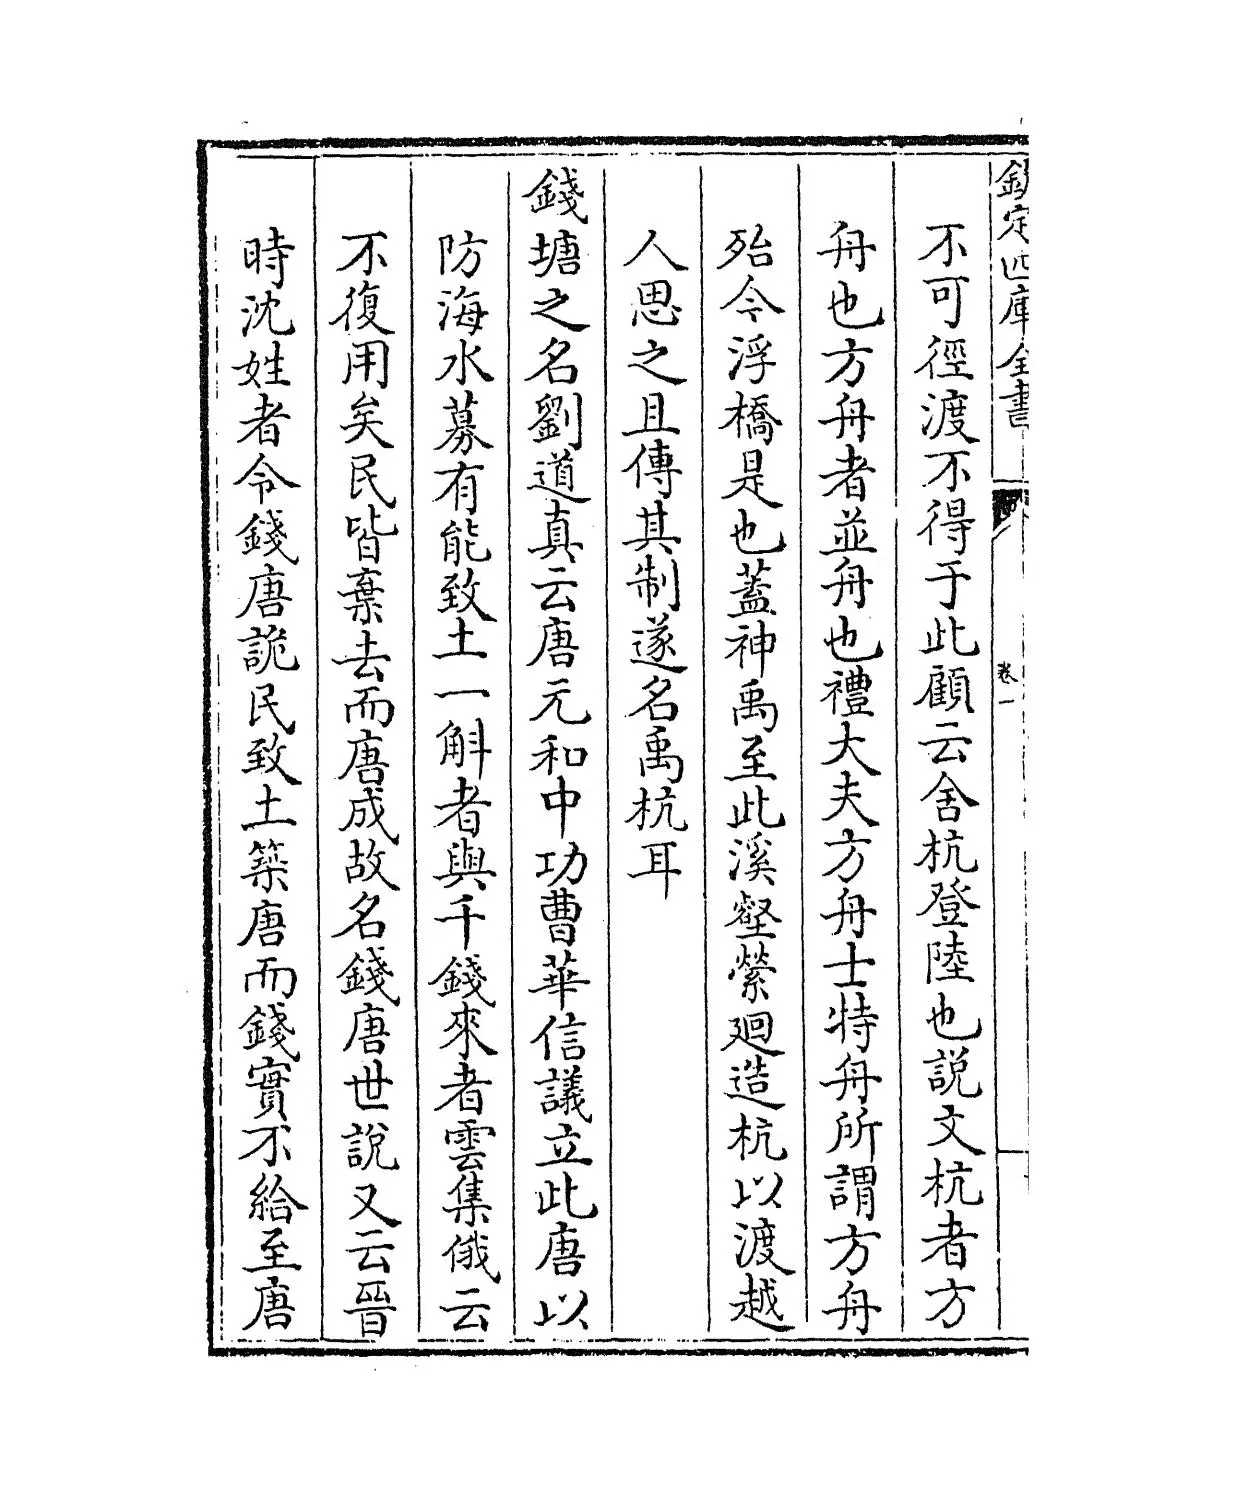 欽定四庫全書
卷一
不可徑渡不得于此顧云舍杭登陸也説文杭者方
舟也方舟者並舟也禮大夫方舟士特舟所謂方舟
殆今浮橋是也蓋神禹至此溪壑縈廻造杭以渡越
人思之且傳其制遂名禹杭耳
錢塘之名劉道真云唐元和中功曹華信議立此唐以
防海水募有能致土一斛者與千錢來者雲集俄云
不復用矣民皆棄去而唐成故名錢唐世説又云晉
時沈姓者令錢唐詭民致土築唐而錢實不給至唐